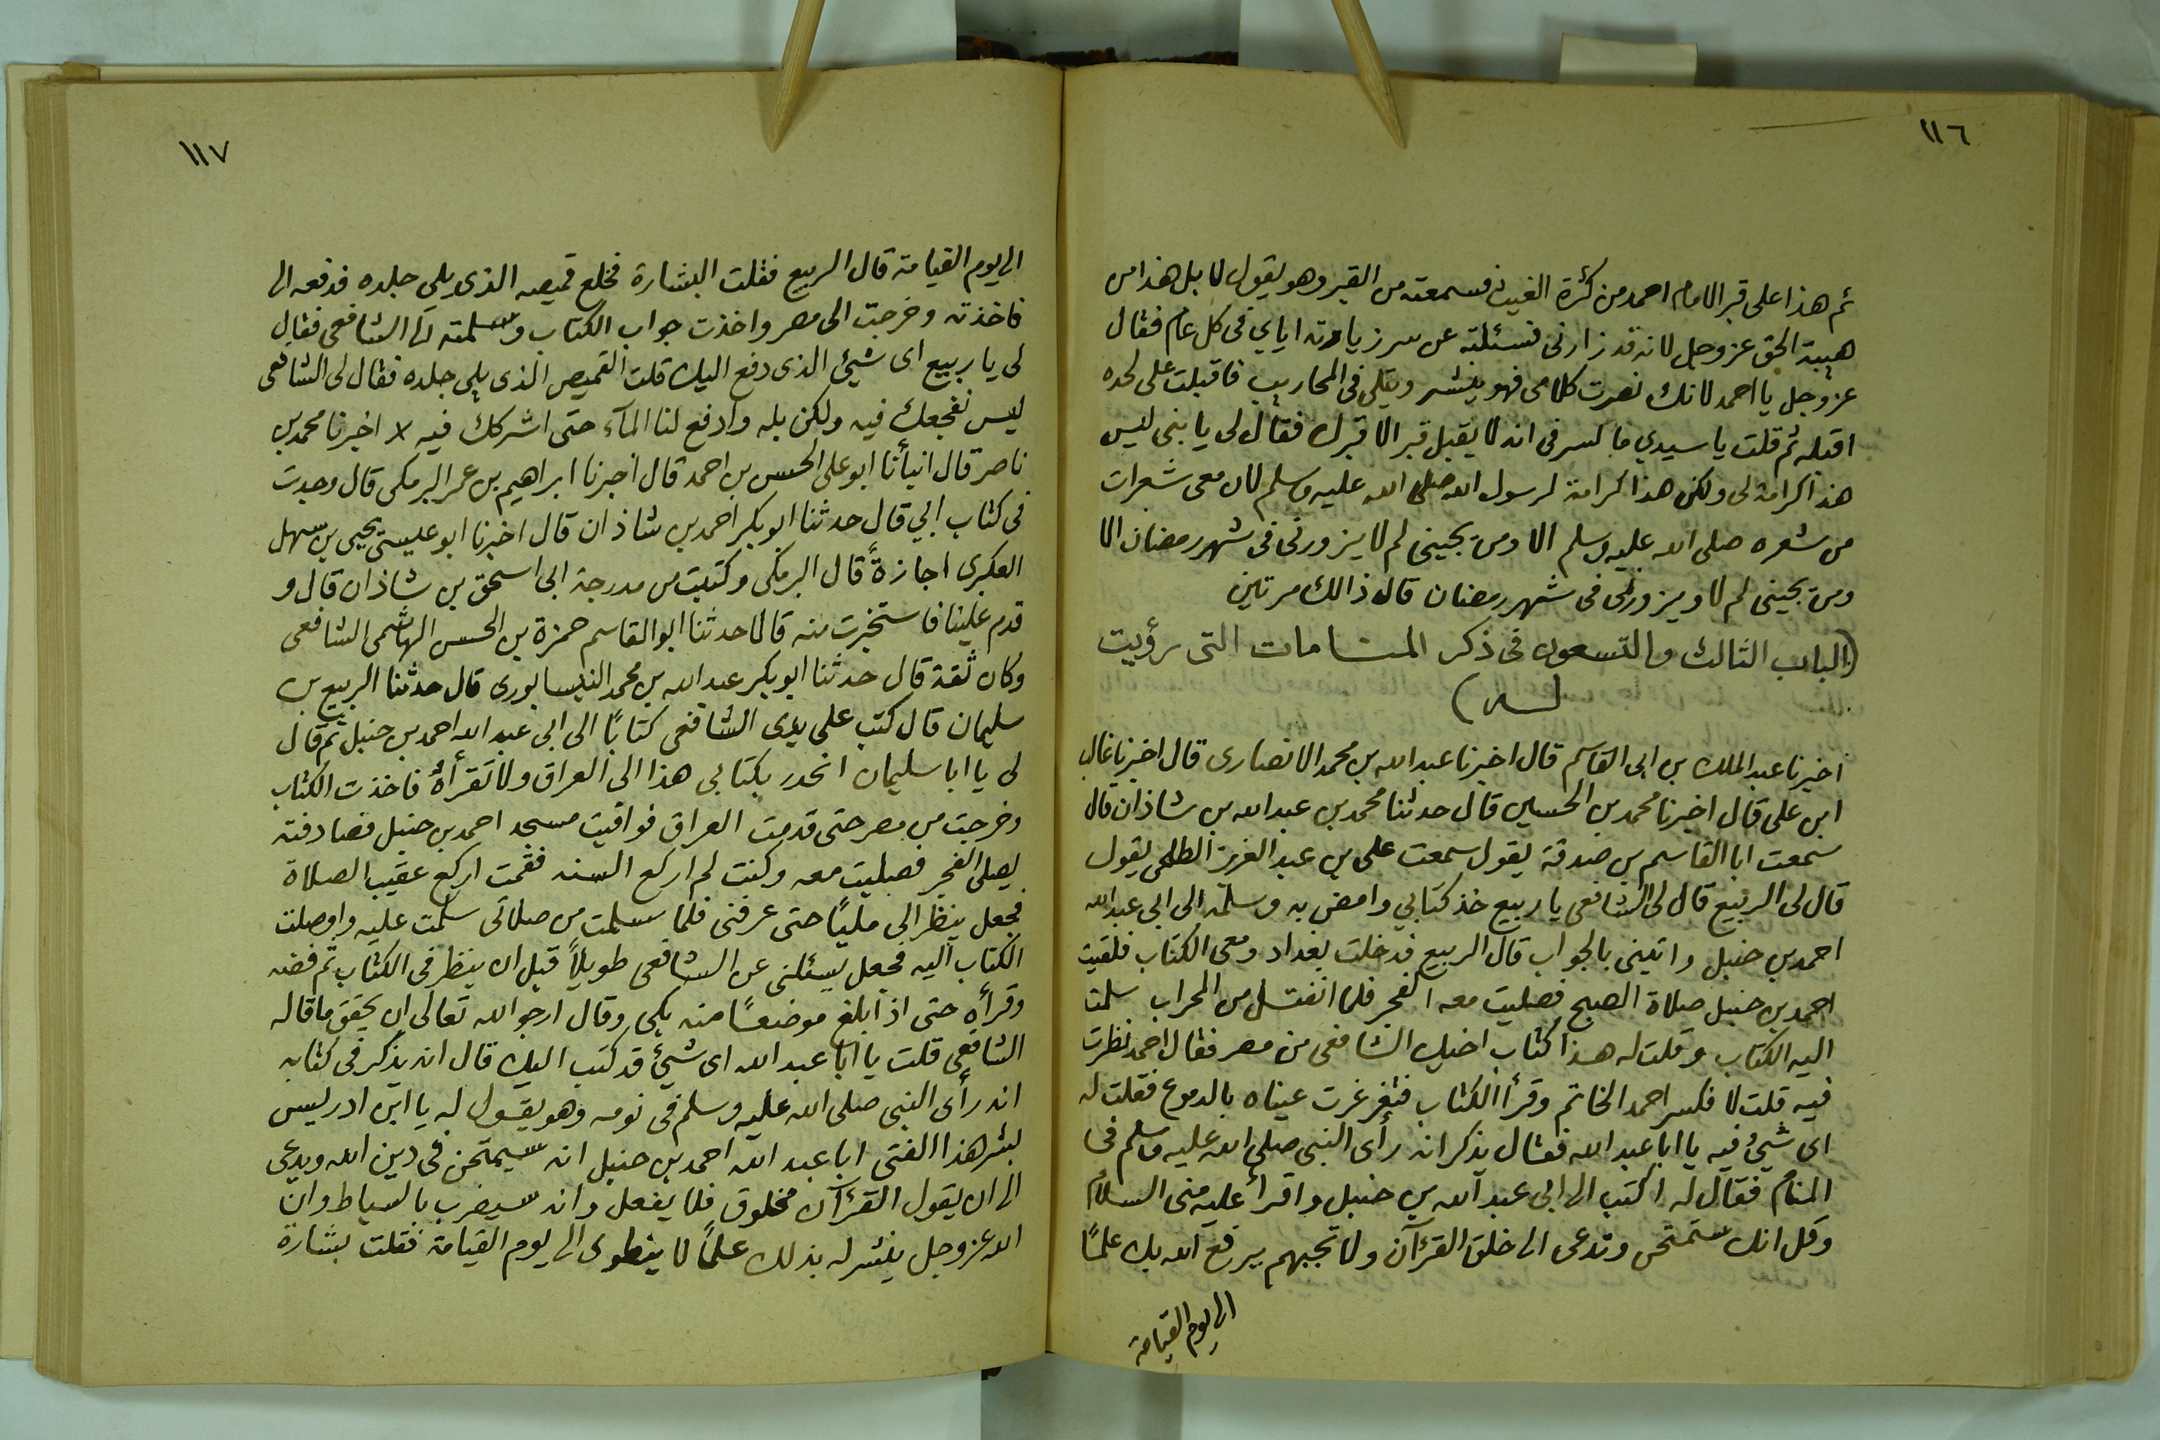 ١١٦
ثم هذا على قبر الامام احمد من كثرة الغيث فسمعته من القبر وهو يقول لا بل هذا من
هيبة الحق عز وجل لانه قد زارنى فسئلته عن سر زيارته اياي فى كل عام فقال
عز وجل يا احمد لانك نصرت كلامى فهو ينشر ويتلى فى المحاريب فاقبلت على لحده
اقبله ثم قلت يا سيدي ما السر فى انه لا يقبل قبر الا قبرك فقال لى يا بنى ليس
هذا كرامة لى ولكن هذا كرامة لرسول الله صلى الله عليه وسلم لان معى شعرات
من شعره صلى الله عليه وسلم الا ومن يحبنى لم لا يزورنى فى شهر رمضان الا
ومن يحبنى لم لا ويزورنى فى شهر رمضان قال ذالك مرتين
(الباب الثالث والتسعون فى ذكر المنامات التى رؤيت
له)
اخبرنا عبد الملك بن ابى القاسم قال اخبرنا عبد الله بن محمد الانصارى قال اخبرنا غالب
ابن على قال اخبرنا محمد بن الحسين قال حدثنا محمد بن عبد الله بن شاذان قال
سمعت ابا القاسم بن صدقة يقول سمعت على بن عبد العزيز الطلحى يقول
قال لى الربيع قال لى الشافعى يا ربيع خذ كتابي وامض به وسلمه الى ابي عبد الله
احمد بن حنبل واتينى بالجواب قال الربيع فدخلت بغداد ومعى الكتاب فلقيت
احمد بن حنبل صلاة الصبح فصليت معه الفجر فلما انفتل من المحراب سلمت
اليه الكتاب وقلت له هذا كتاب اخيك الشافعى من مصر فقال احمد نظرت
فيه قلت لا فكسر احمد الخاتم وقرأ الكتاب فتغرغرت عيناه بالدموع فقلت له
اى شئ فيه يا ابا عبد الله فقال يذكر انه رأى النبى صلى الله عليه وسلم فى
المنام فقال له اكتب الى ابى عبد الله بن حنبل واقرأ عليه منى السلام
وقل انك ستمتحن وتدعى الى خلق القرآن ولا تجبهم يرفع الله بك علمًا
الى يوم القيامة
١١٧
الى يوم القيامة قال الربيع فقلت البشارة فخلع قميصه الذى يلى جلده فدفعه الى
فاخذته وخرجت الى مصر واخذت جواب الكتاب وسلمته الى الشافعى فقال
لى يا ربيع اى شيئ الذى دفع اليك قلت القميص الذى يلى جلده فقال لى الشافعى
ليس نفجعك فيه ولكن بله وادفع لنا المآء حتى اشركك فيه × اخبرنا محمد بن
ناصر قال انبأنا ابو على الحسن بن احمد قال اخبرنا ابراهيم بن عمر البرمكى قال وجدت
فى كتاب ابي قال حدثنا ابو بكر احمد بن شاذان قال اخبرنا ابو عيسى يحيى بن سهل
العكبرى اجازةً قال البرمكى وكتبت من مدرجة ابى اسحق بن شاذان قال و
قدم علينا فاستخبرت منه قالا حدثنا ابو القاسم حمزة بن الحسن الهاشمى الشافعى
وكان ثقة قال حدثنا ابو بكر عبد الله بن محمد النيسابورى قال حدثنا الربيع بن
سليمان قال كتب على يدى الشافعى كتابًا الى ابى عبد الله احمد بن حنبل ثم قال
لى يا ابا سليمان انحدر بكتابي هذا الى العراق ولا تقرأه فاخذت الكتاب
وخرجت من مصر حتى قدمت العراق فوافيت مسجد احمد بن حنبل فصادفته
يصلى الفجر فصليت معه وكنت لم اركع السنه فقمت اركع عقيب الصلاة
فجعل ينظر الى مليًا حتى عرفنى فلما سلمت من صلاتى سلمت عليه واوصلت
الكتاب اليه فجعل يسئلنى عن الشافعى طويلاً قبل ان ينظر فى الكتاب ثم فضه
وقرأه حتى اذا بلغ موضعًا منه بكى وقال ارجو الله تعالى ان يحقق ما قاله
الشافعى قلت يا ابا عبد الله اى شيئ قد كتب اليك قال انه يذكر فى كتابه
انه رأى النبى صلى الله عليه وسلم فى نومه وهو يقول له يا ابن ادريس
بشر هذا الفتى ابا عبد الله احمد بن حنبل انه سيمتحن فى دين الله ويدعى
الى ان يقول القرآن مخلوق فلا يفعل وانه سيضرب بالسياط وان
الله عز وجل ينشر له بذلك علمًا لا ينطوى الى يوم القيامة فقلت بشارة